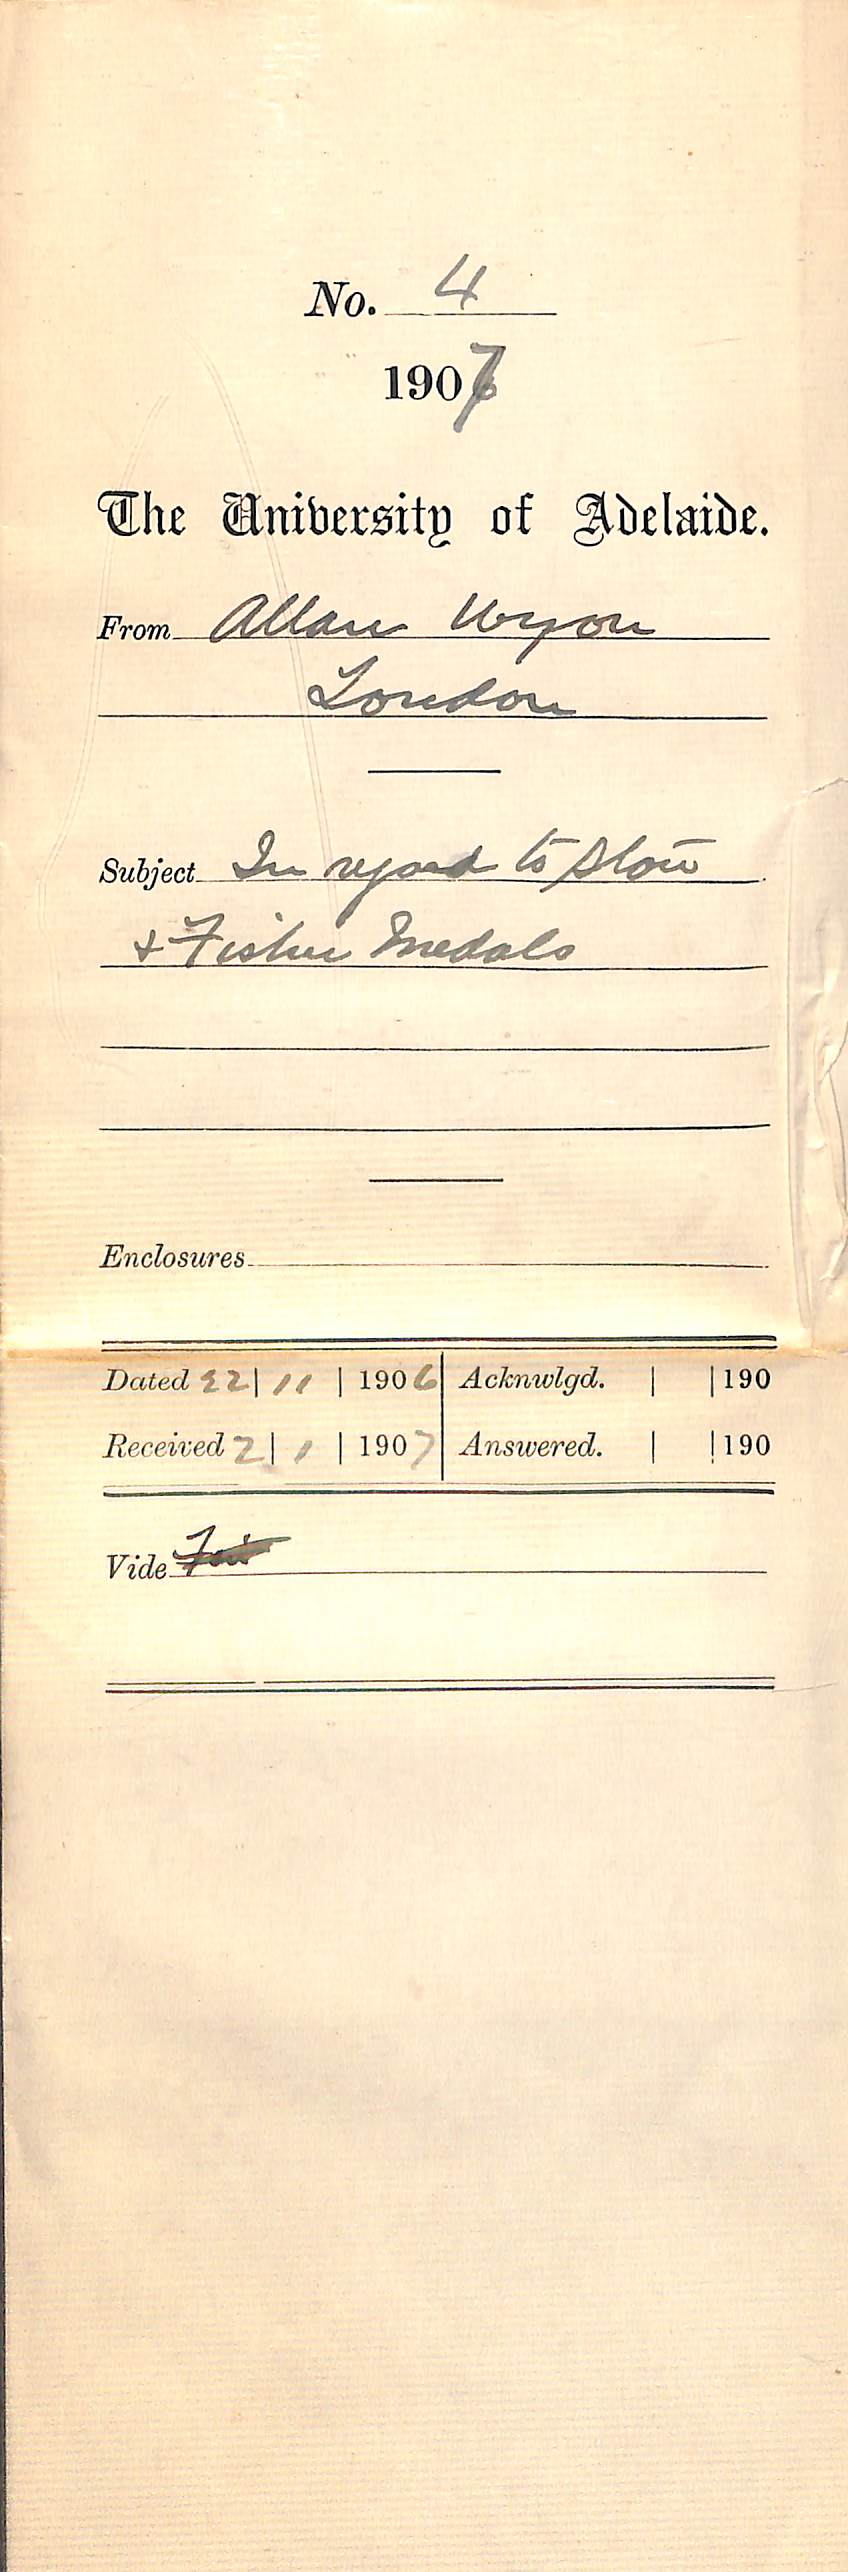 No. 4
1907
The University of Adelaide.
From Allan Wyon
London
Subject In regard to Stow
& Fisher Medals
Enclosures
Dated 22 | 11 | 1906 Acknwlgd. | | 190
Received 2 | 1 | 1907 Answered. | | 190
Vide